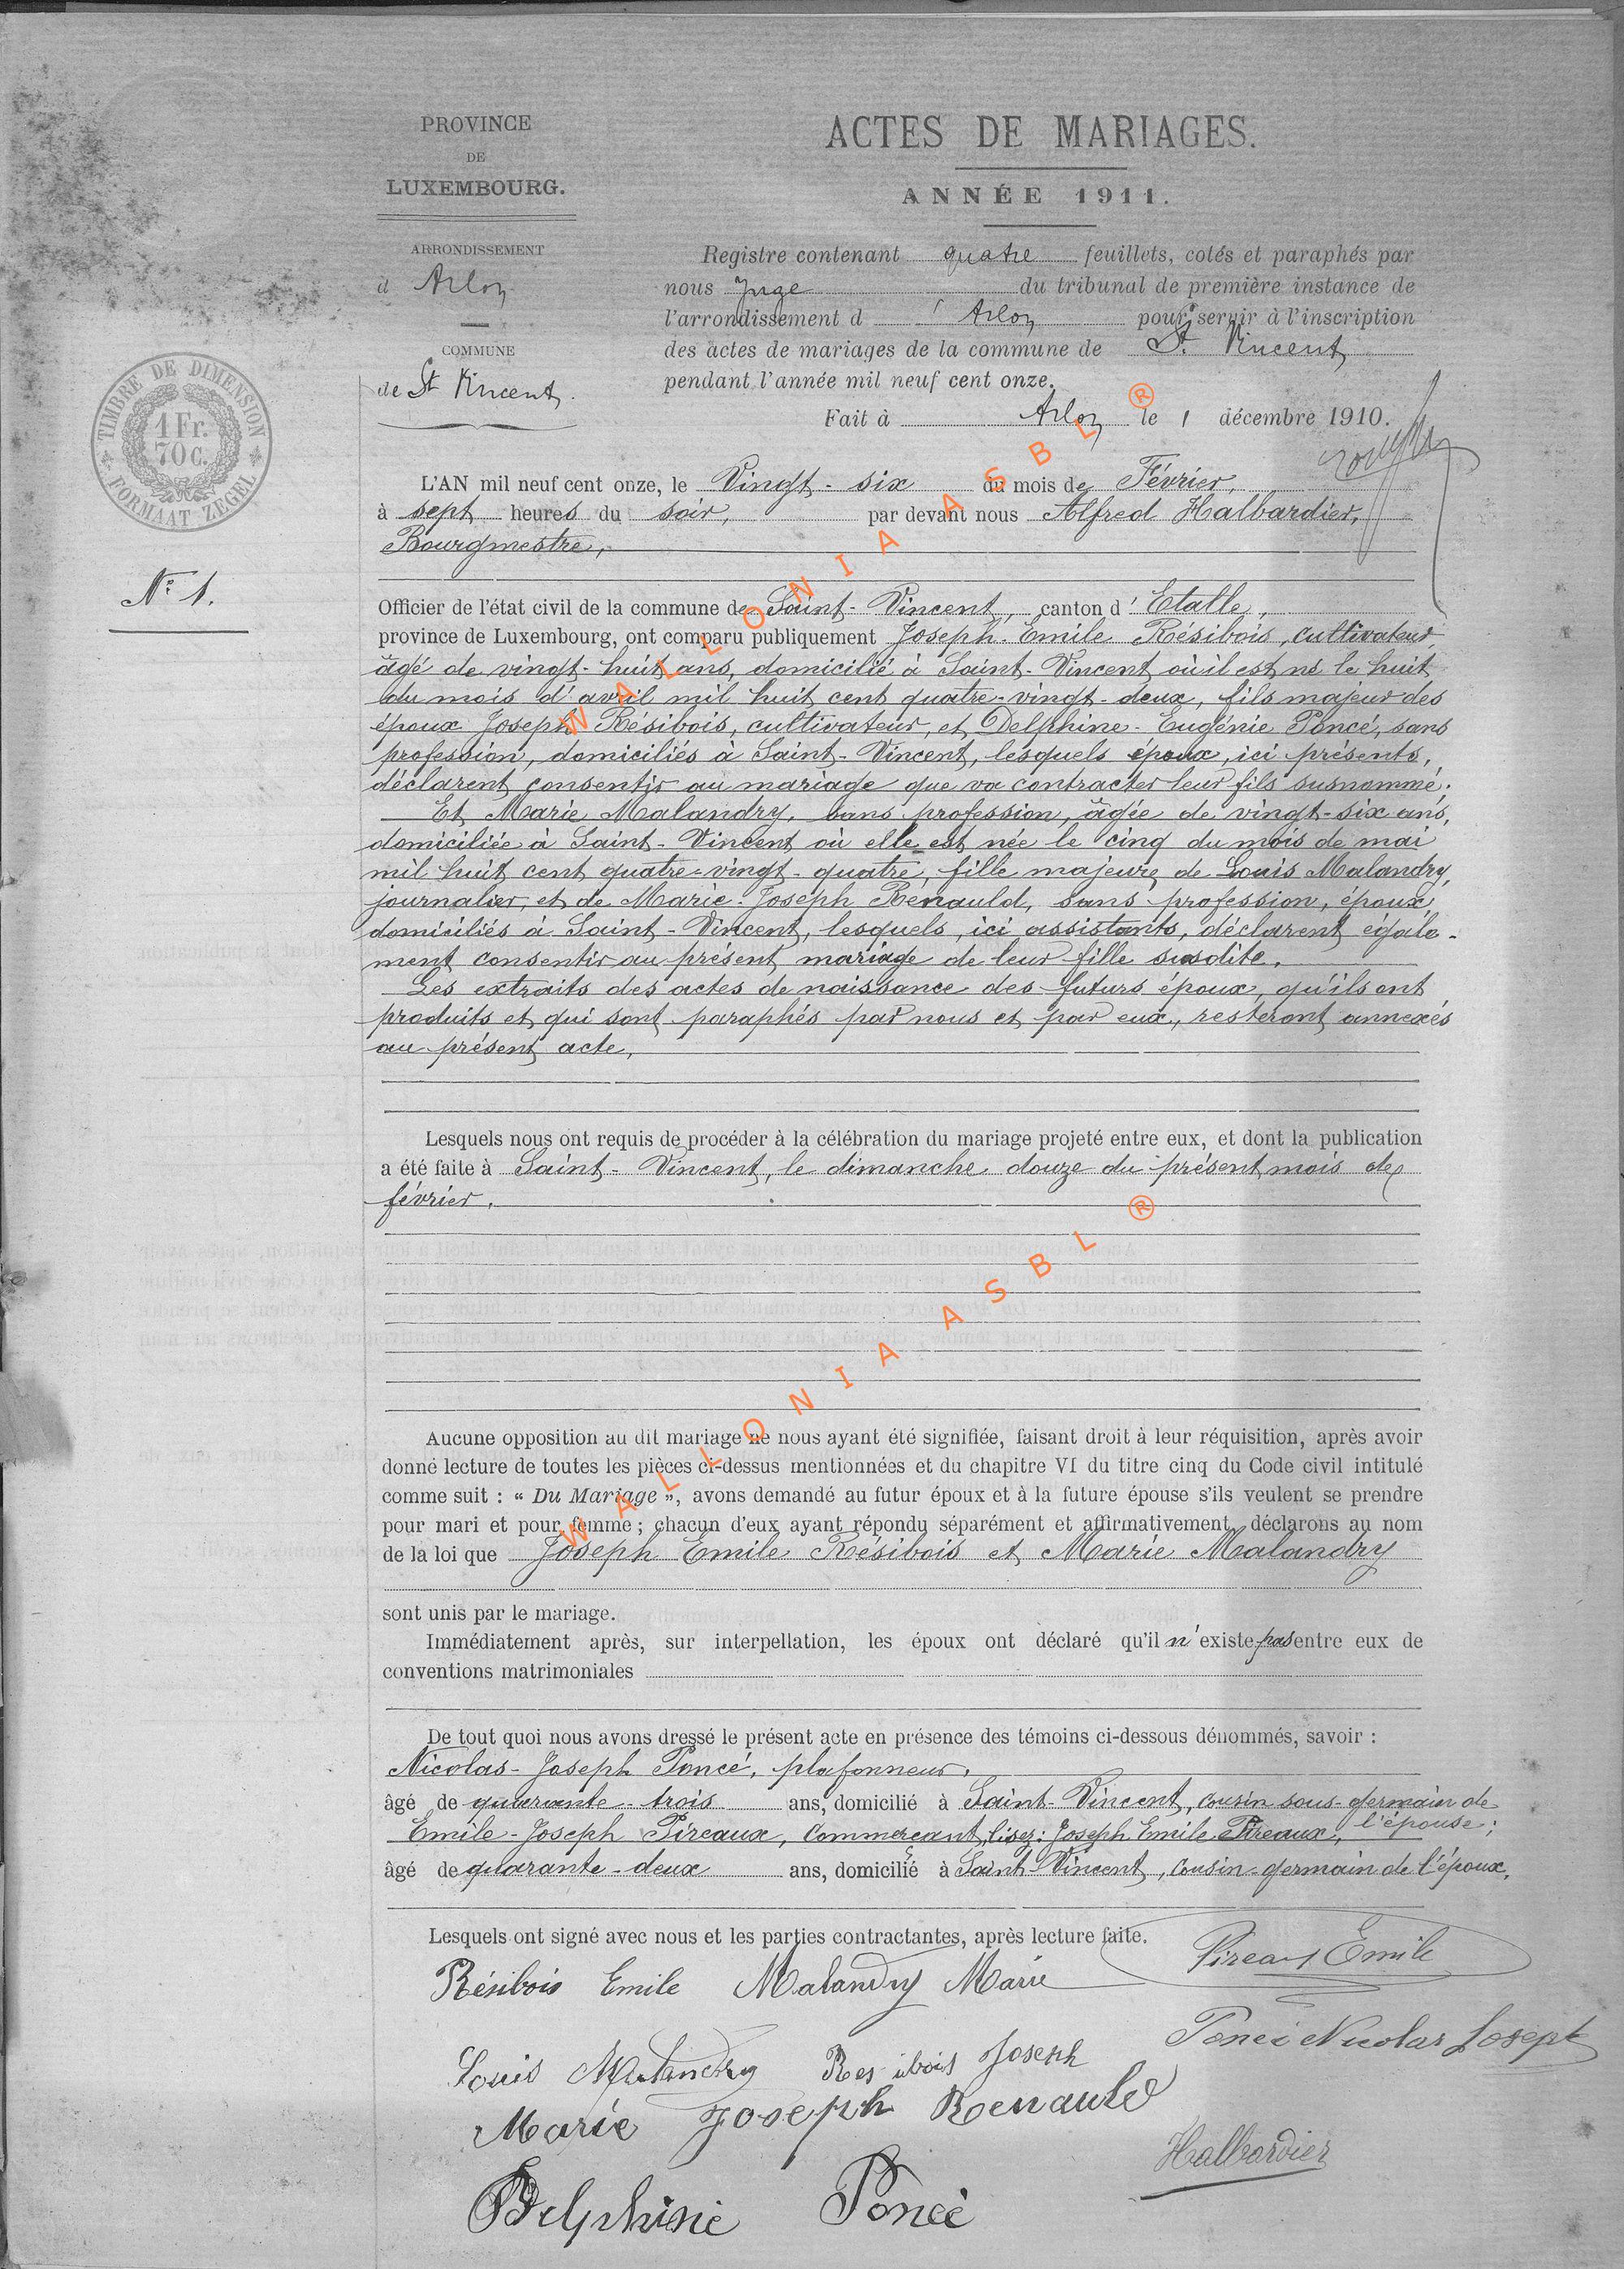 PROVINCE
DE
LUXEMBOURG.
ARRONDISSEMENT
d Arlon
COMMUNE
de St Vincent.
TIMBRE DE DIMENSION
1 Fr.
70 C.
FORMAAT ZEGEL
ACTES DE MARIAGES.
ANNÉE 1911.
Registre contenant quatre feuillets, cotés et paraphés par
nous Juge du tribunal de première instance de
l'arrondissement d 'Arlon pour servir à l'inscription
des actes de mariages de la commune de St. Vincent
pendant l'année mil neuf cent onze.
Fait à Arlon le 1 décembre 1910.
N° 1.
L'AN mil neuf cent onze, le Vingt-six du mois de Février,
à sept heures du soir, par devant nous Alfred Halbardier,
Bourgmestre,
Officier de l'état civil de la commune de Saint-Vincent, canton d'Etalle,
province de Luxembourg, ont comparu publiquement Joseph-Emile Résibois, cultivateur,
âgé de vingt-huit ans, domicilié à Saint-Vincent où il est né le huit
du mois d'avril mil huit cent quatre-vingt-deux, fils majeur des
époux Joseph Résibois, cultivateur, et Delphine-Eugénie Poncé, sans
profession, domiciliés à Saint-Vincent, lesquels époux, ici présents,
déclarent consentir au mariage que va contracter leur fils susnommé.
Et Marie Malandry, sans profession, âgée de vingt-six ans,
domiciliée à Saint-Vincent où elle est née le cinq du mois de mai
mil huit cent quatre-vingt-quatre, fille majeure de Louis Malandry,
journalier, et de Marie-Joseph Renauld, sans profession, époux
domiciliés à Saint-Vincent, lesquels, ici assistants, déclarent égale-
ment consentir au présent mariage de leur fille susdite.
Les extraits des actes de naissance des futurs époux, qu'ils ont
produits et qui sont paraphés par nous et par eux, resteront annexés
au présent acte.
Lesquels nous ont requis de procéder à la célébration du mariage projeté entre eux, et dont la publication
a été faite à Saint-Vincent, le dimanche douze du présent mois de
février.
Aucune opposition au dit mariage ne nous ayant été signifiée, faisant droit à leur réquisition, après avoir
donné lecture de toutes les pièces ci-dessus mentionnées et du chapitre VI du titre cinq du Code civil intitulé
comme suit : « Du Mariage », avons demandé au futur époux et à la future épouse s'ils veulent se prendre
pour mari et pour femme ; chacun d'eux ayant répondu séparément et affirmativement, déclarons au nom
de la loi que Joseph Emile Résibois et Marie Malandry
sont unis par le mariage.
Immédiatement après, sur interpellation, les époux ont déclaré qu'il n'existe pas entre eux de
conventions matrimoniales
De tout quoi nous avons dressé le présent acte en présence des témoins ci-dessous dénommés, savoir :
Nicolas-Joseph Poncé, plafonneur,
âgé de quarante-trois ans, domicilié à Saint-Vincent, cousin sous-germain de
l'épouse;
Emile-Joseph Pireaux, commerçant, lisez: Joseph Emile Pireaux,
âgé de quarante-deux ans, domicilié à Saint-Vincent, cousin-germain de l'époux.
Lesquels ont signé avec nous et les parties contractantes, après lecture faite.
Résibois Emile Malandry Marie Pireaux Emile
Poncé Nicolas Joseph
Louis Malandry Resibois Joseph
Marie Joseph Renauld
Halbardier
Delphine Poncé
WALLONIA ASBL ®
WALLONIA ASBL ®